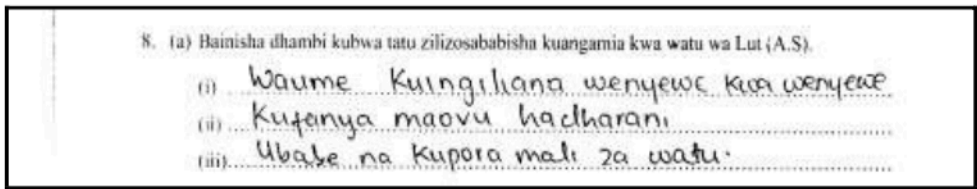 8. (a) Bainisha dhambi kubwa tatu zilizosababisha kuangamia kwa watu wa Lut (A.S).
(i) Waume Kuingiliana wenyewe kwa wenyewe
(ii) Kufanya maovu hadharani
(iii) Ubabe na Kupora mali za watu.